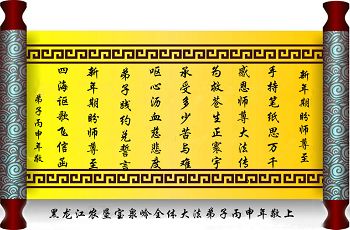 新年盼师尊
手持笔纸思万千
感恩师尊大法传
为救苍生正寰宇
承受多少苦与难
呕心沥血慈悲度
弟子践约兑誓言
新年期盼师尊至
四海讴歌飞信函
弟子丙申年敬
黑龙江农垦宝泉岭全体大法弟子丙申年敬上